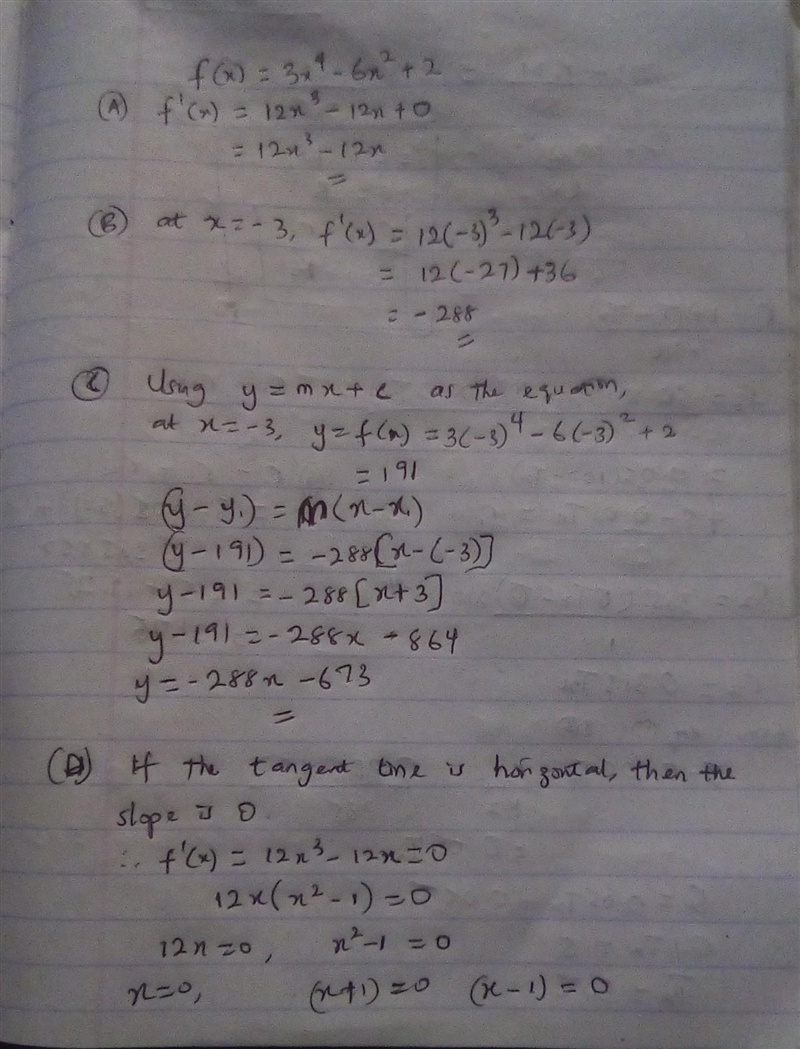 f(x) = 3x⁴ - 6x² + 2
(A) f'(x) = 12x³ - 12x + 0
= 12x³ - 12x
(B) at x = -3, f'(x) = 12(-3)³ - 12(-3)
= 12(-27) + 36
= -288
(C) Using y = mx + c as the equation,
at x = -3, y = f(x) = 3(-3)⁴ - 6(-3)² + 2
= 191
(y - y₁) = m(x - x₁)
(y - 191) = -288[x - (-3)]
y - 191 = -288[x + 3]
y - 191 = -288x - 864
y = -288x - 673
(D) If the tangent line is horizontal, then the
slope is 0
∴ f'(x) = 12x³ - 12x = 0
12x(x² - 1) = 0
12x = 0, x² - 1 = 0
x = 0, (x + 1) = 0 (x - 1) = 0